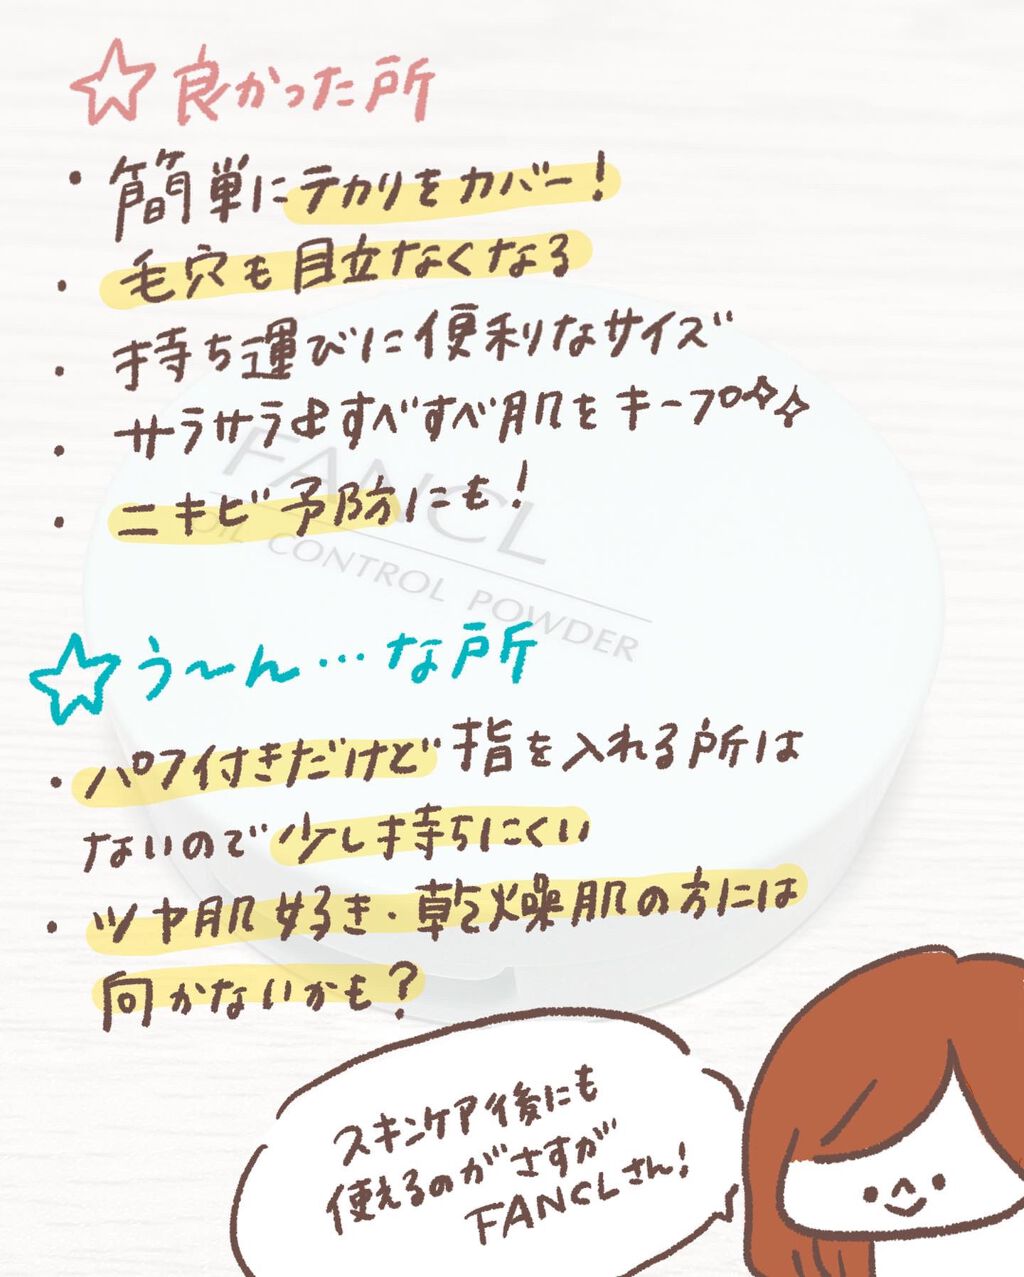 ☆良かった所
・簡単にテカリをカバー!
・毛穴も目立なくなる
・持ち運びに便利なサイズ
・サラサラ&すべすべ肌をキープ✧✧
・ニキビ予防にも!
FANCL
OIL CONTROL POWDER
☆う〜ん…な所
・パフ付きだけど指を入れる所は
ないので少し持ちにくい
・ツヤ肌好き・乾燥肌の方には
向かないかも?
スキンケア後にも
使えるのがさすが
FANCLさん!